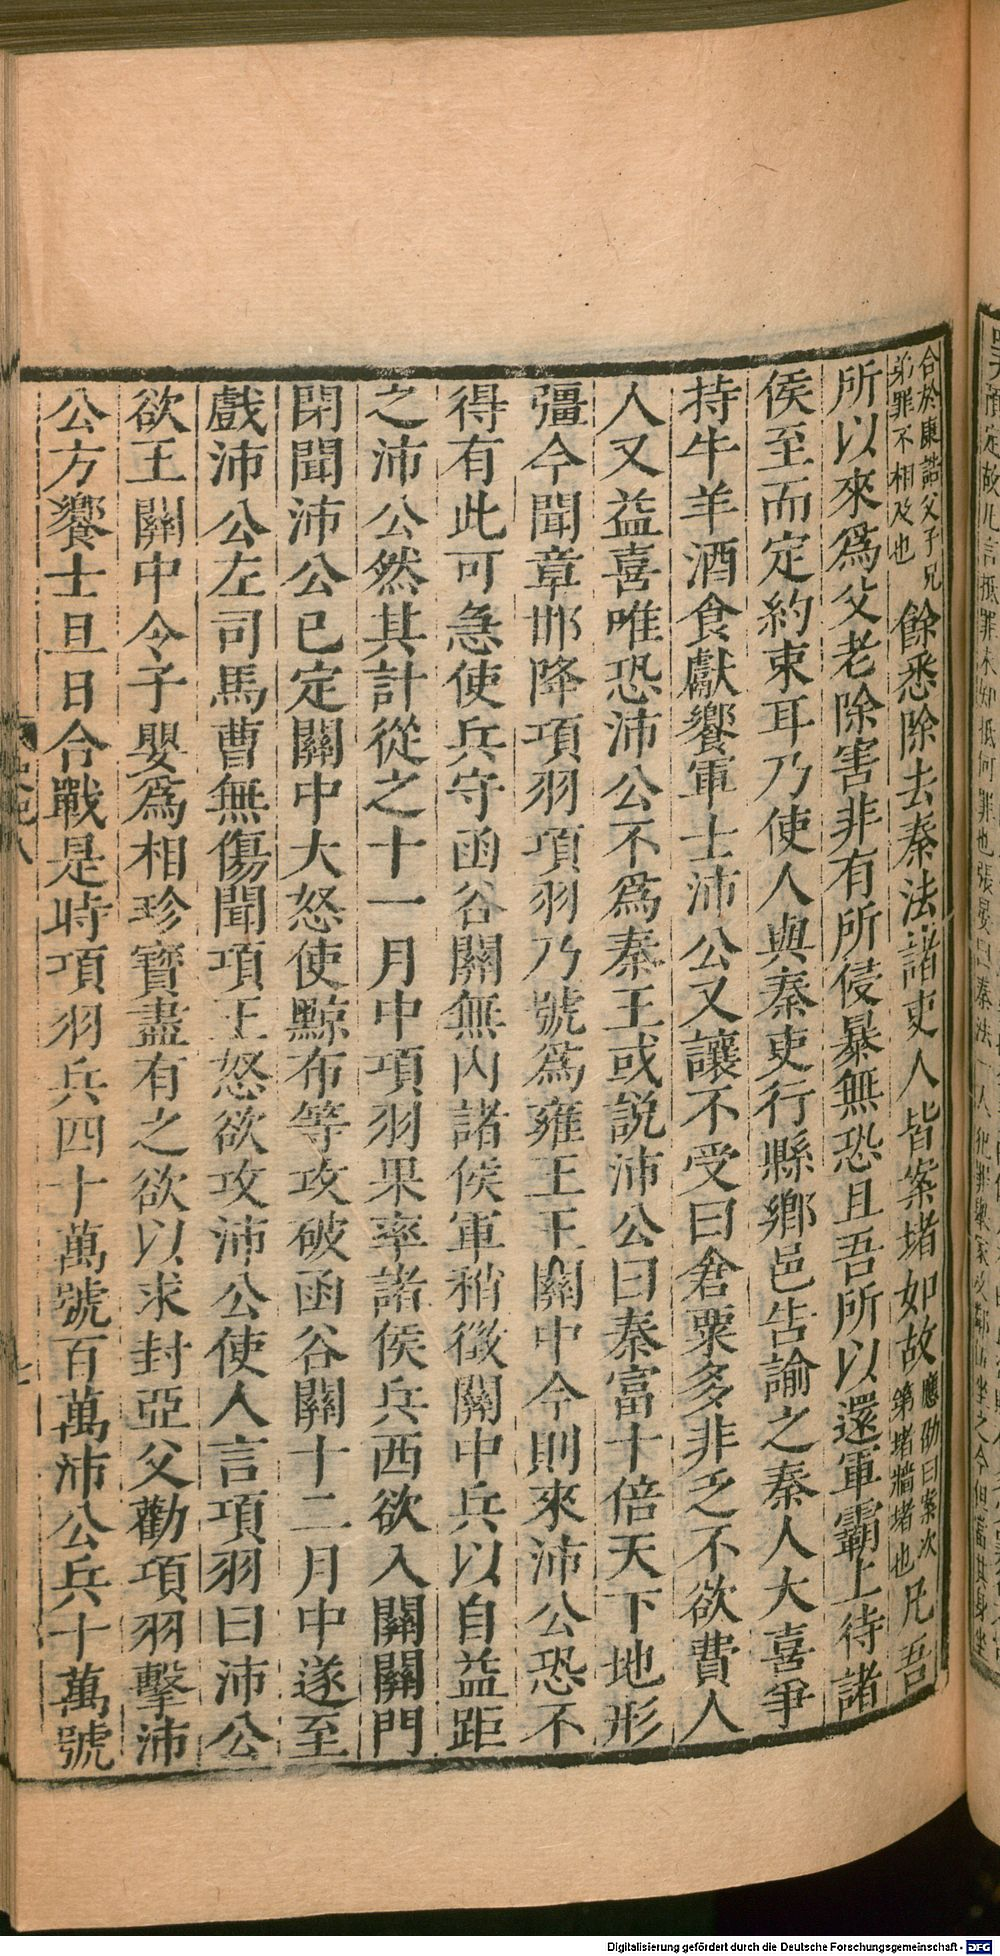 合於康誥父子兄
弟罪不相及也
餘悉除去秦法諸吏人皆案堵如故
應劭曰案次
第堵牆堵也
凡吾
所以來爲父老除害非有所侵暴無恐且吾所以還軍霸上待諸
侯至而定約束耳乃使人與秦吏行縣鄉邑告諭之秦人大喜爭
持牛羊酒食獻饗軍士沛公又讓不受曰倉粟多非乏不欲費人
人又益喜唯恐沛公不爲秦王或説沛公曰秦富十倍天下地形
彊今聞章邯降項羽項羽乃號爲雍王王關中今則來沛公恐不
得有此可急使兵守函谷關無内諸侯軍稍徴關中兵以自益距
之沛公然其計從之十一月中項羽果率諸侯兵西欲入關關門
閉聞沛公已定關中大怒使黥布等攻破函谷關十二月中遂至
戲沛公左司馬曹無傷聞項王怒欲攻沛公使人言項羽曰沛公
欲王關中令子嬰爲相珍寶盡有之欲以求封亞父勸項羽擊沛
公方饗士旦日合戰是時項羽兵四十萬號百萬沛公兵十萬號
Digitalisierung gefördert durch die Deutsche Forschungsgemeinschaft - DFG